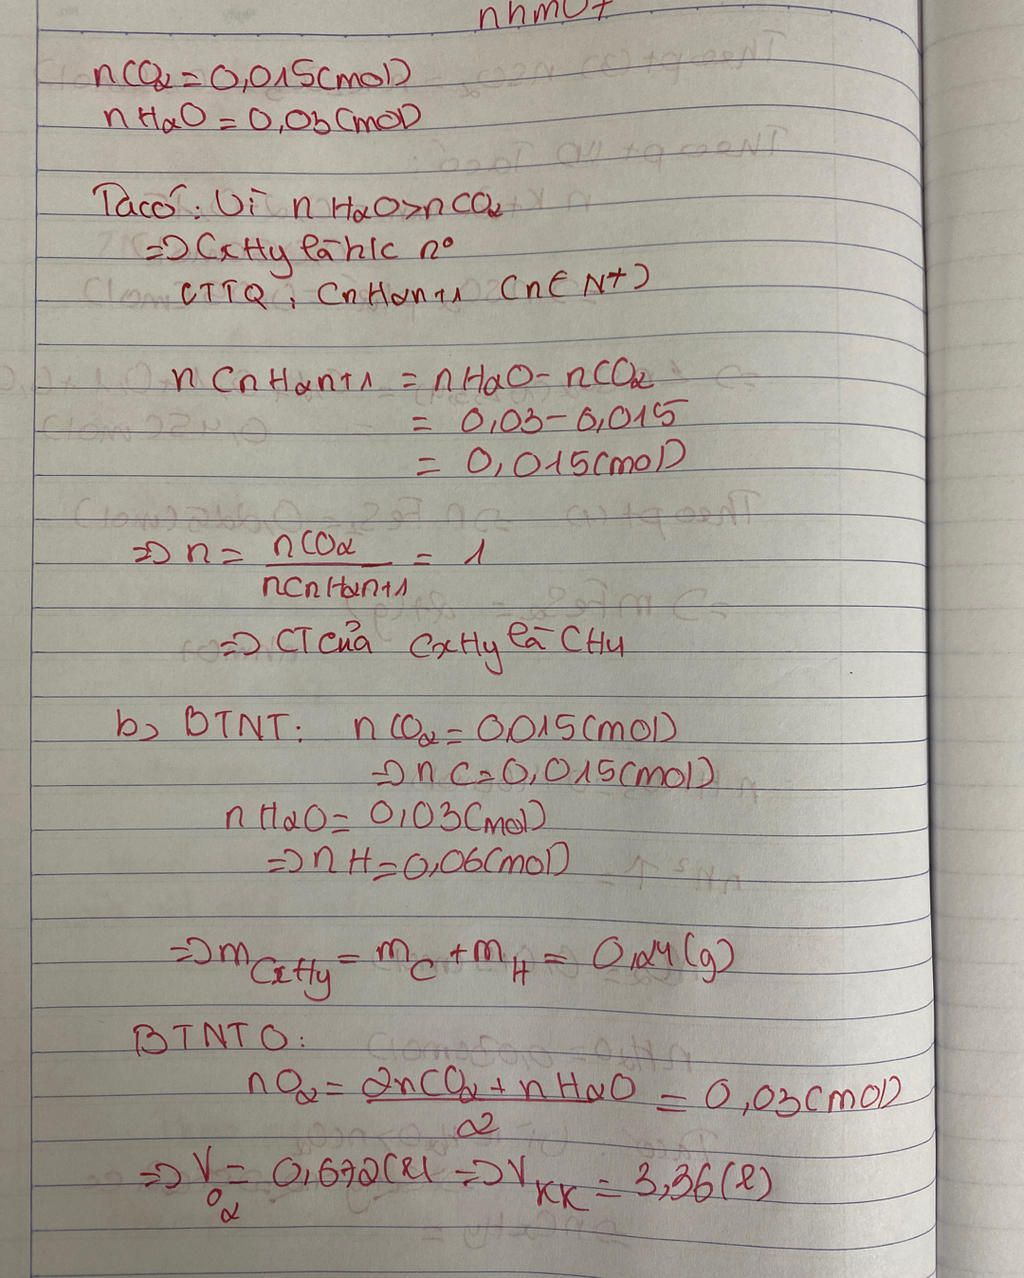 nCO2 = 0,015(mol)
nH2O = 0,03(mol)
Ta có: Vì nH2O > nCO2
=> CxHy là h/c no
CTTQ: CnH2n+1 (n∈N+)
nCnH2n+1 = nH2O - nCO2
= 0,03 - 0,015
= 0,015(mol)
=> n = nCO2 / nCnH2n+1 = 1
=> CT của CxHy là CH4
b, BTNT: nCO2 = 0,015(mol)
=> nC = 0,015(mol)
nH2O = 0,03(mol)
=> nH = 0,06(mol)
=> mCxHy = mC + mH = 0,24(g)
BTNT O:
nO2 = (2nCO2 + nH2O) / 2 = 0,03(mol)
=> VO2 = 0,672(l) => VKK = 3,36(l)